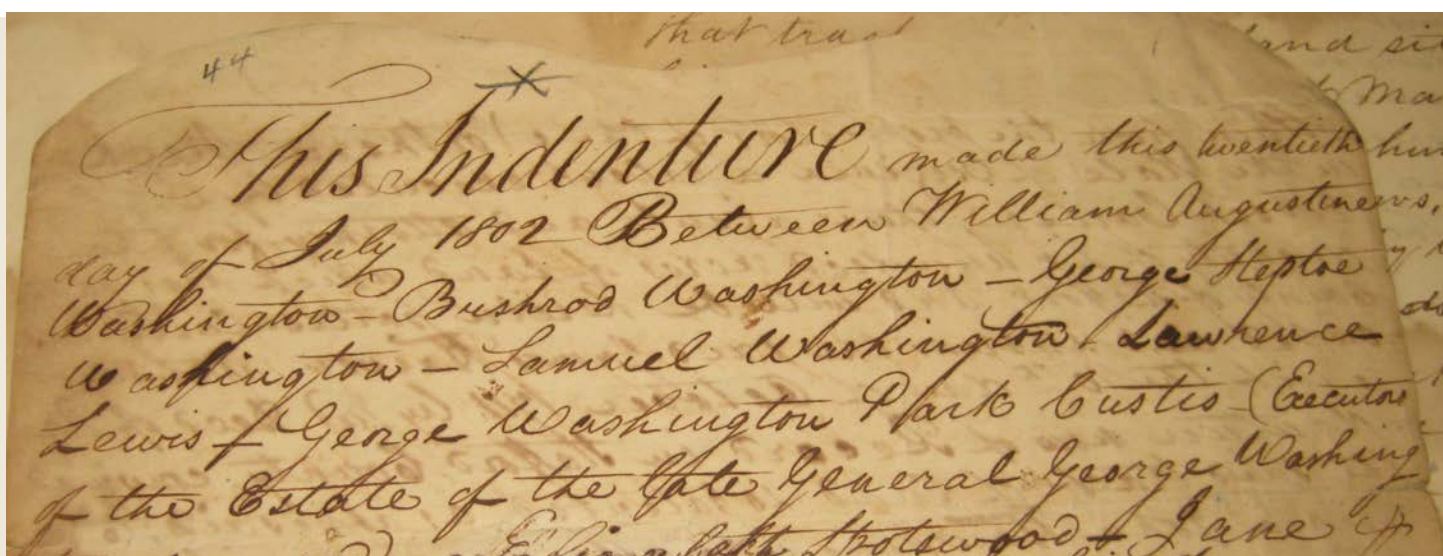 that tra
land si
44
Ma
This Indenture made this twentieth
day of July 1802 Between William Augustine
Washington – Bushrod Washington – George Steptoe
Washington – Samuel Washington Lawrence
Lewis – George Washington Park Custis (Executors
of the Estate of the late General George Washing
Elizabeth Spotswood – Jane